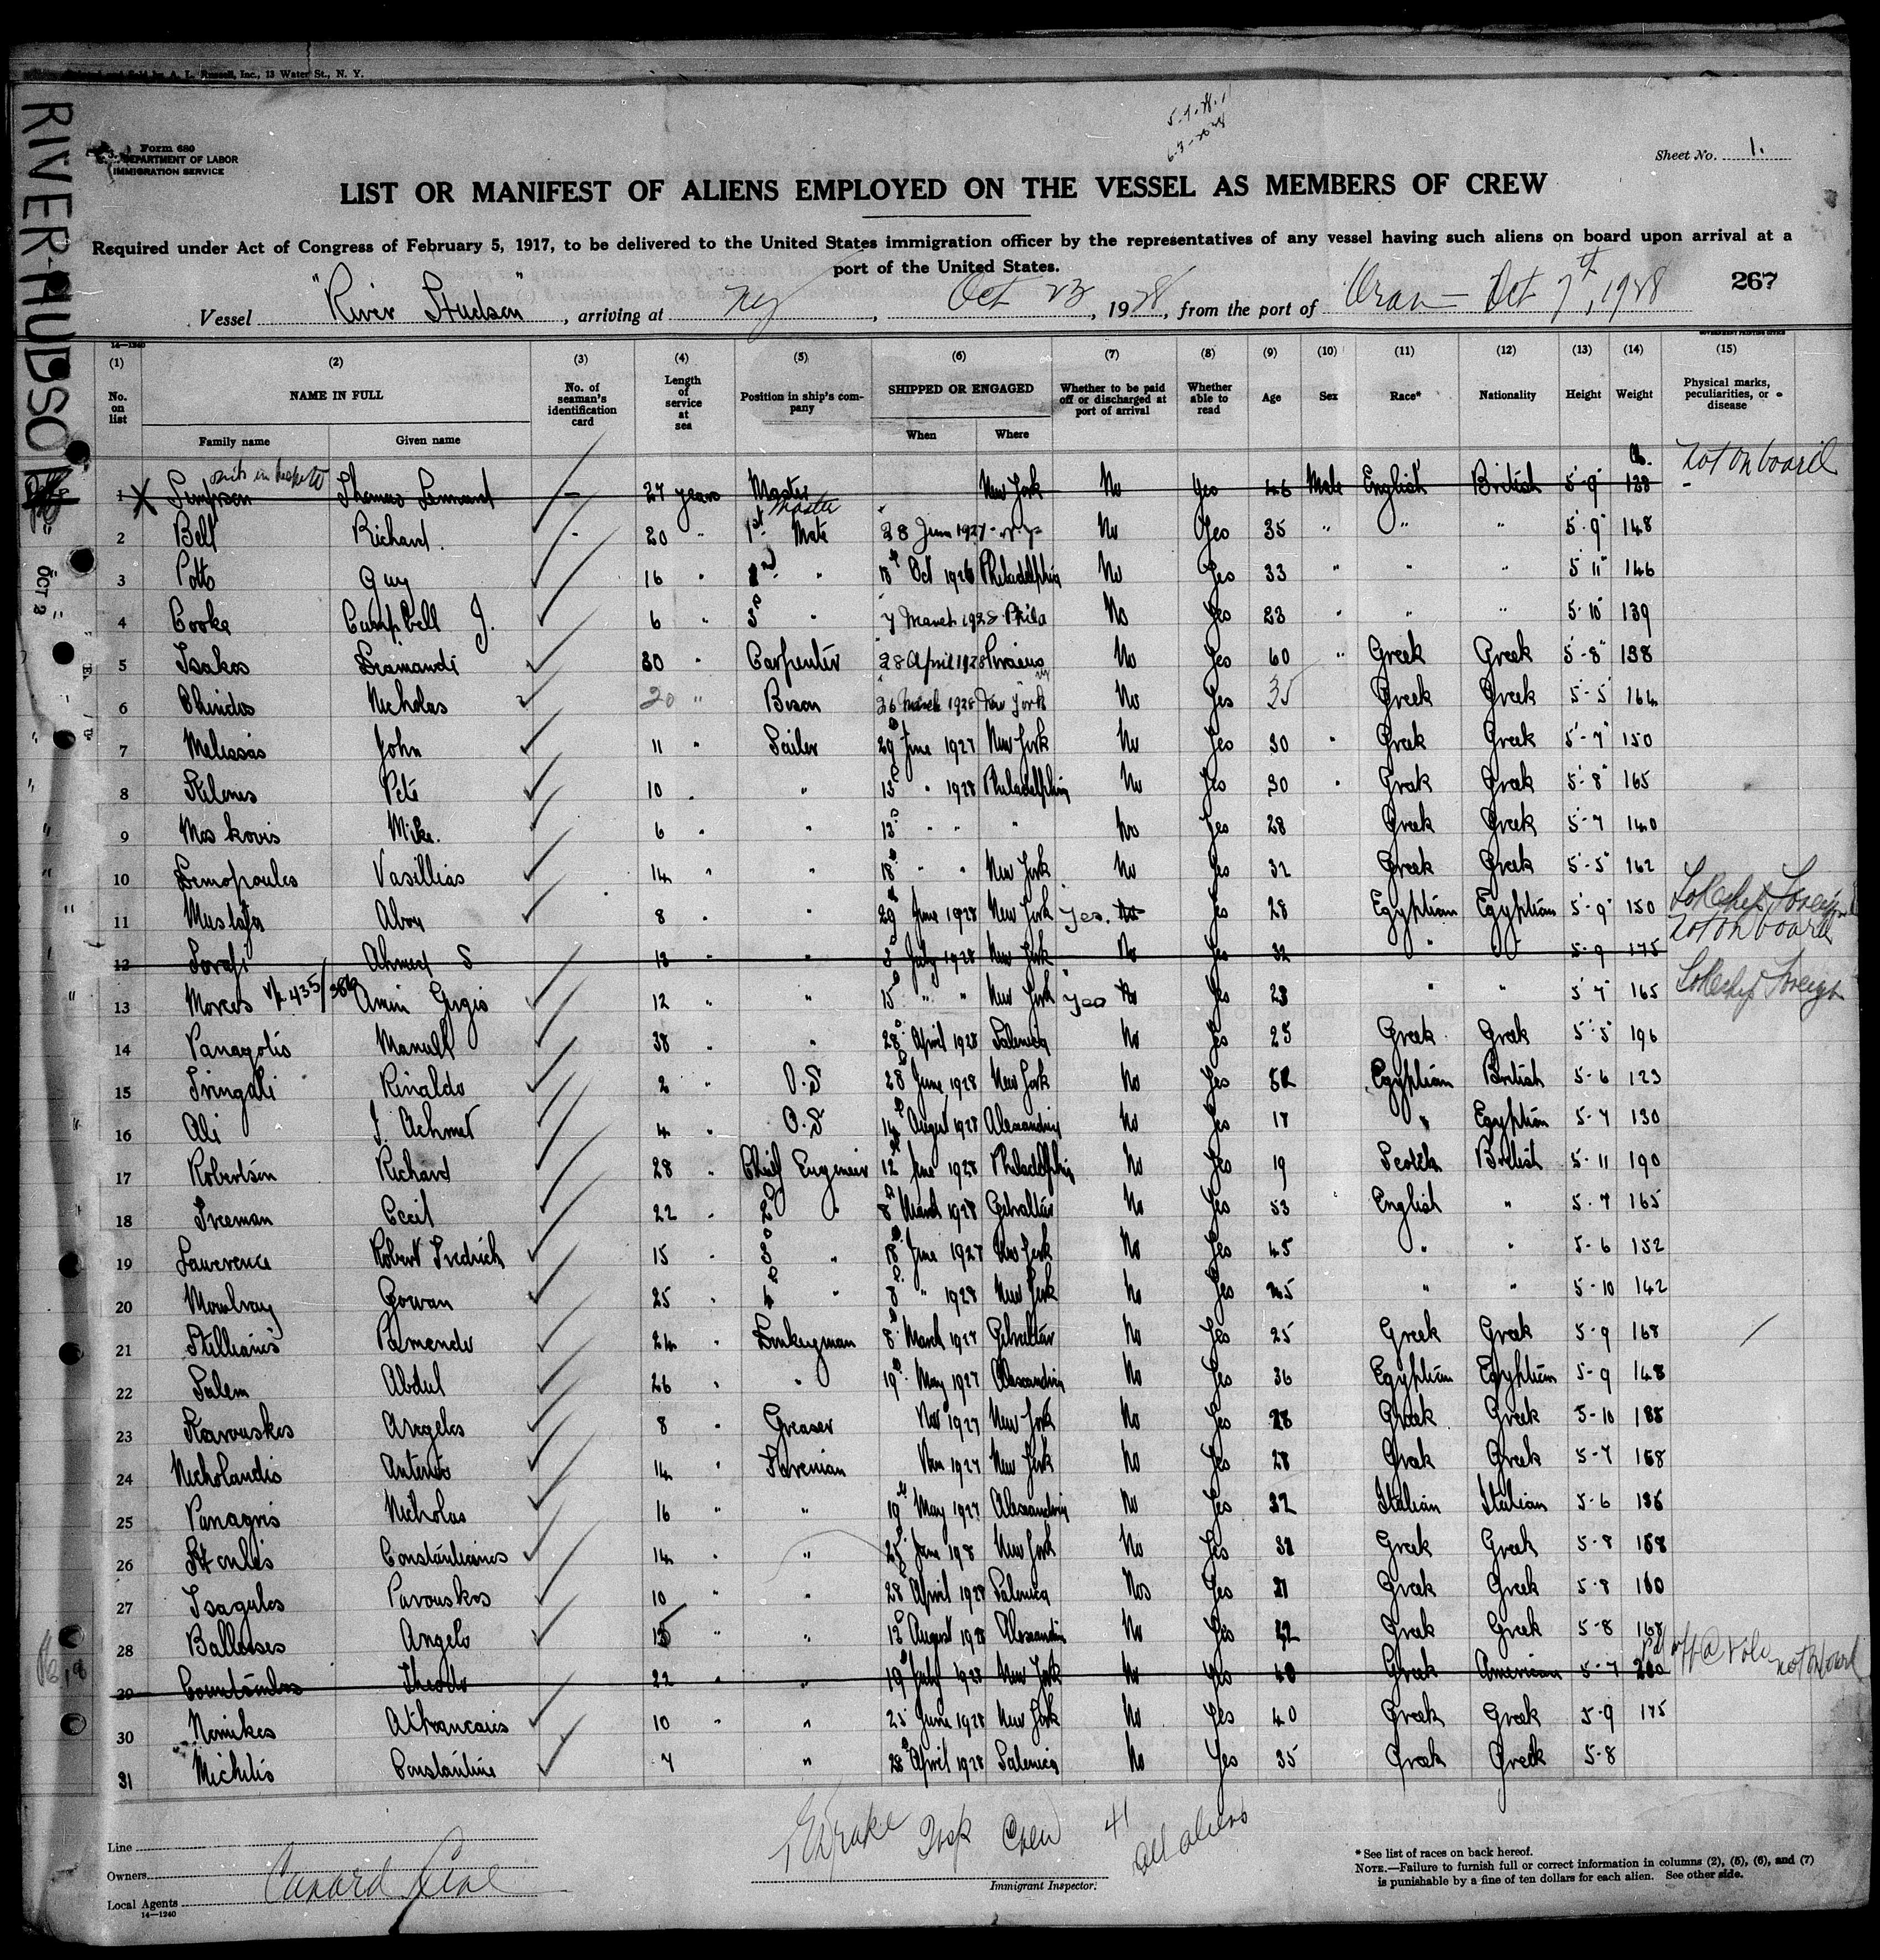 Inc., 13 Water St., N. Y.
RIVER HUDSO
OCT 2
Form 680
DEPARTMENT OF LABOR
IMMIGRATION SERVICE
Sheet No. 1.
LIST OR MANIFEST OF ALIENS EMPLOYED ON THE VESSEL AS MEMBERS OF CREW
Required under Act of Congress of February 5, 1917, to be delivered to the United States immigration officer by the representatives of any vessel having such aliens on board upon arrival at a
port of the United States.
267
Vessel "River Hudson", arriving at NY, Oct 23, 1928, from the port of Oran - Oct 7th, 1928
14—1240
(1) (2) (3) (4) (5) (6) (7) (8) (9) (10) (11) (12) (13) (14) (15)
No. on list NAME IN FULL No. of seaman's identification card Length of service at sea Position in ship's company SHIPPED OR ENGAGED Whether to be paid off or discharged at port of arrival Whether able to read Age Sex Race* Nationality Height Weight Physical marks, peculiarities, or disease
Family name Given name When Where
1 Simpson Thomas Lennard - 27 years Master New York No Yes 46 Male English British 5'9" 128 not on board
2 Bell Richard. - 20 " 1st Mate Master 28 June 1927 N.Y. No Yes 35 " " " 5'9" 148
3 Potts Guy 16 " 2nd " 18 Oct 1926 Philadelphia No Yes 33 " " " 5'11" 146
4 Cooke Campbell J. 6 " 3rd " 7 March 1928 Phila No Yes 23 " " " 5'10" 139
5 Isakos Diamandi 30 " Carpenter 28 April 1928 Piraeus No Yes 60 " Greek Greek 5'-8" 138
6 Nicholas 20 " Bosn 26 March 1928 New York No Yes 35 Greek Greek 5'-5" 164
7 Melissas John 11 " Sailor 29 June 1927 New York No Yes 30 " Greek Greek 5'-7" 150
8 Pete 10 " " 13 " 1928 Philadelphia No Yes 30 " Greek Greek 5'-8" 165
9 Moskovis Mike. 6 " " 13 " " " No Yes 28 Greek Greek 5-7 140
10 Demopoulos Vasillias 14 " " 18 " " New York No Yes 32 Greek Greek 5'-5" 162
11 Mustafa Abou 8 " " 29 June 1928 New York Yes. No Yes 28 Egyptian Egyptian 5'-9" 150
12 Ahmed S 18 " " 3 July 1928 New York No Yes 32 " " 5-9 175 not on board
13 Morcos Amin Girgis 12 " " 15 " " New York Yes No Yes 28 " " 5'7" 165
14 Panagotis Manull 38 " " 28 April 1928 Salonica No Yes 25 Greek Greek 5'-5" 196
15 Rinaldo 2 " O.S 28 June 1928 New York No Yes 52 Egyptian British 5-6 123
16 Ali J. Achmet 4 " O.S 14 August 1928 Alexandria No Yes 17 " Egyptian 5-7 130
17 Robertson Richard 28 " Chief Engineer 12 June 1928 Philadelphia No Yes 19 Scotch British 5-11 190
18 Freeman Cecil 22 " 2 " 8 March 1928 Gibraltar No Yes 53 English " 5-7 165
19 Lawerence Robert Fredrich 15 " 3 " 18 June 1927 New York No Yes 45 " " 5-6 152
20 Mowbray Gowan 25 " 4 " 8 " 1928 New York No Yes 45 " " 5-10 142
21 Stillianis 24 " Donkeyman 8 March 1927 Gibraltar No Yes 25 Greek Greek 5-9 168
22 Salem Abdul 26 " " 19 May 1927 Alexandria No Yes 36 Egyptian Egyptian 5-9 148
23 Karouskos Angelos 8 " Greaser Nov 1927 New York No Yes 28 Greek Greek 5-10 188
24 Nicholandis 14 " Nov 1927 New York No Yes 28 Greek Greek 5-7 158
25 Panagris Nicholas 16 " " 19 May 1927 Alexandria No Yes 32 Italian Italian 5-6 136
26 14 " " 25 June 198 New York No Yes Greek Greek 5-8 158
27 Tsagules Parouskos 10 " " 28 April 1928 Salonica No Yes 21 Greek Greek 5-8 160
28 Angelo 15 " " 12 August 1928 Alexandria No Yes Greek Greek 5-8 168
29 Theodr 22 " " 19 July 1928 New York No Yes 40 Greek American 5-7 200 not on board
30 Nomikos 10 " " 25 June 1928 New York No Yes 40 Greek Greek 5-9 175
31 Michelis Constantine 7 " 28 April 1928 Salonica No Yes 35 Greek Greek 5-8
Line
Owners
Local Agents Cunard Line
14—1240
Crew 41
all aliens
Immigrant Inspector.
* See list of races on back hereof.
NOTE.—Failure to furnish full or correct information in columns (2), (5), (6), and (7)
is punishable by a fine of ten dollars for each alien. See other side.